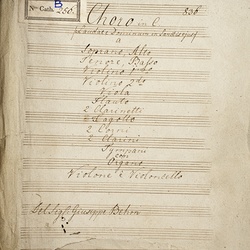 B
Nro Cath. 256.
836
Choro in C
Laudate Dominum in Sanctis ejus
a
Soprano, Alto
Tenore, Basso
Violino 1mo
Violino 2do
Viola
Flauto
2 Clarinetti
2 Corni
2 Clarini
Tympani
con
Organo
Violone e Violoncello
Del Sigr. Giuseppe